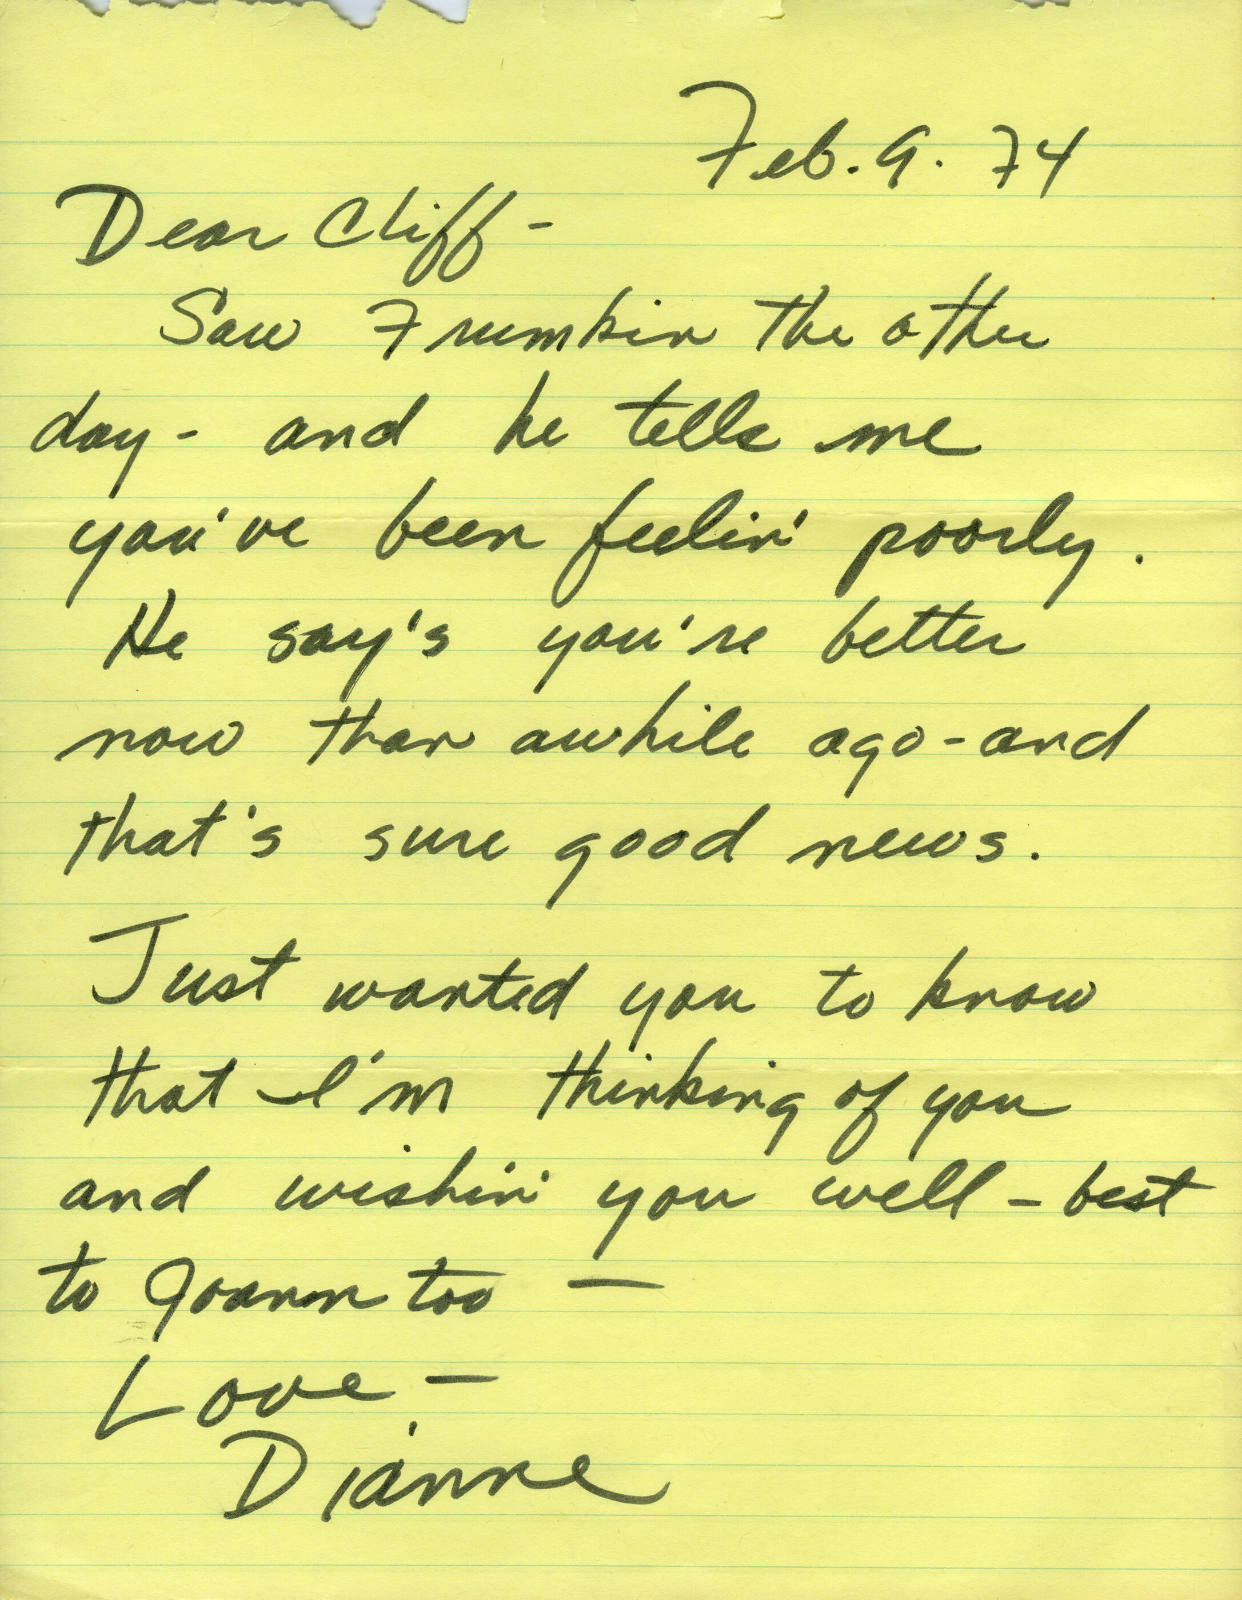 Feb. 9. 74
Dear Cliff -
Saw Frumkin the other
day - and he tells me
you've been feelin' poorly.
He say's you're better
now than awhile ago - and
that's sure good news.
Just wanted you to know
that I'm thinking of you
and wishin' you well - best
to Joann too —
Love -
Dianne